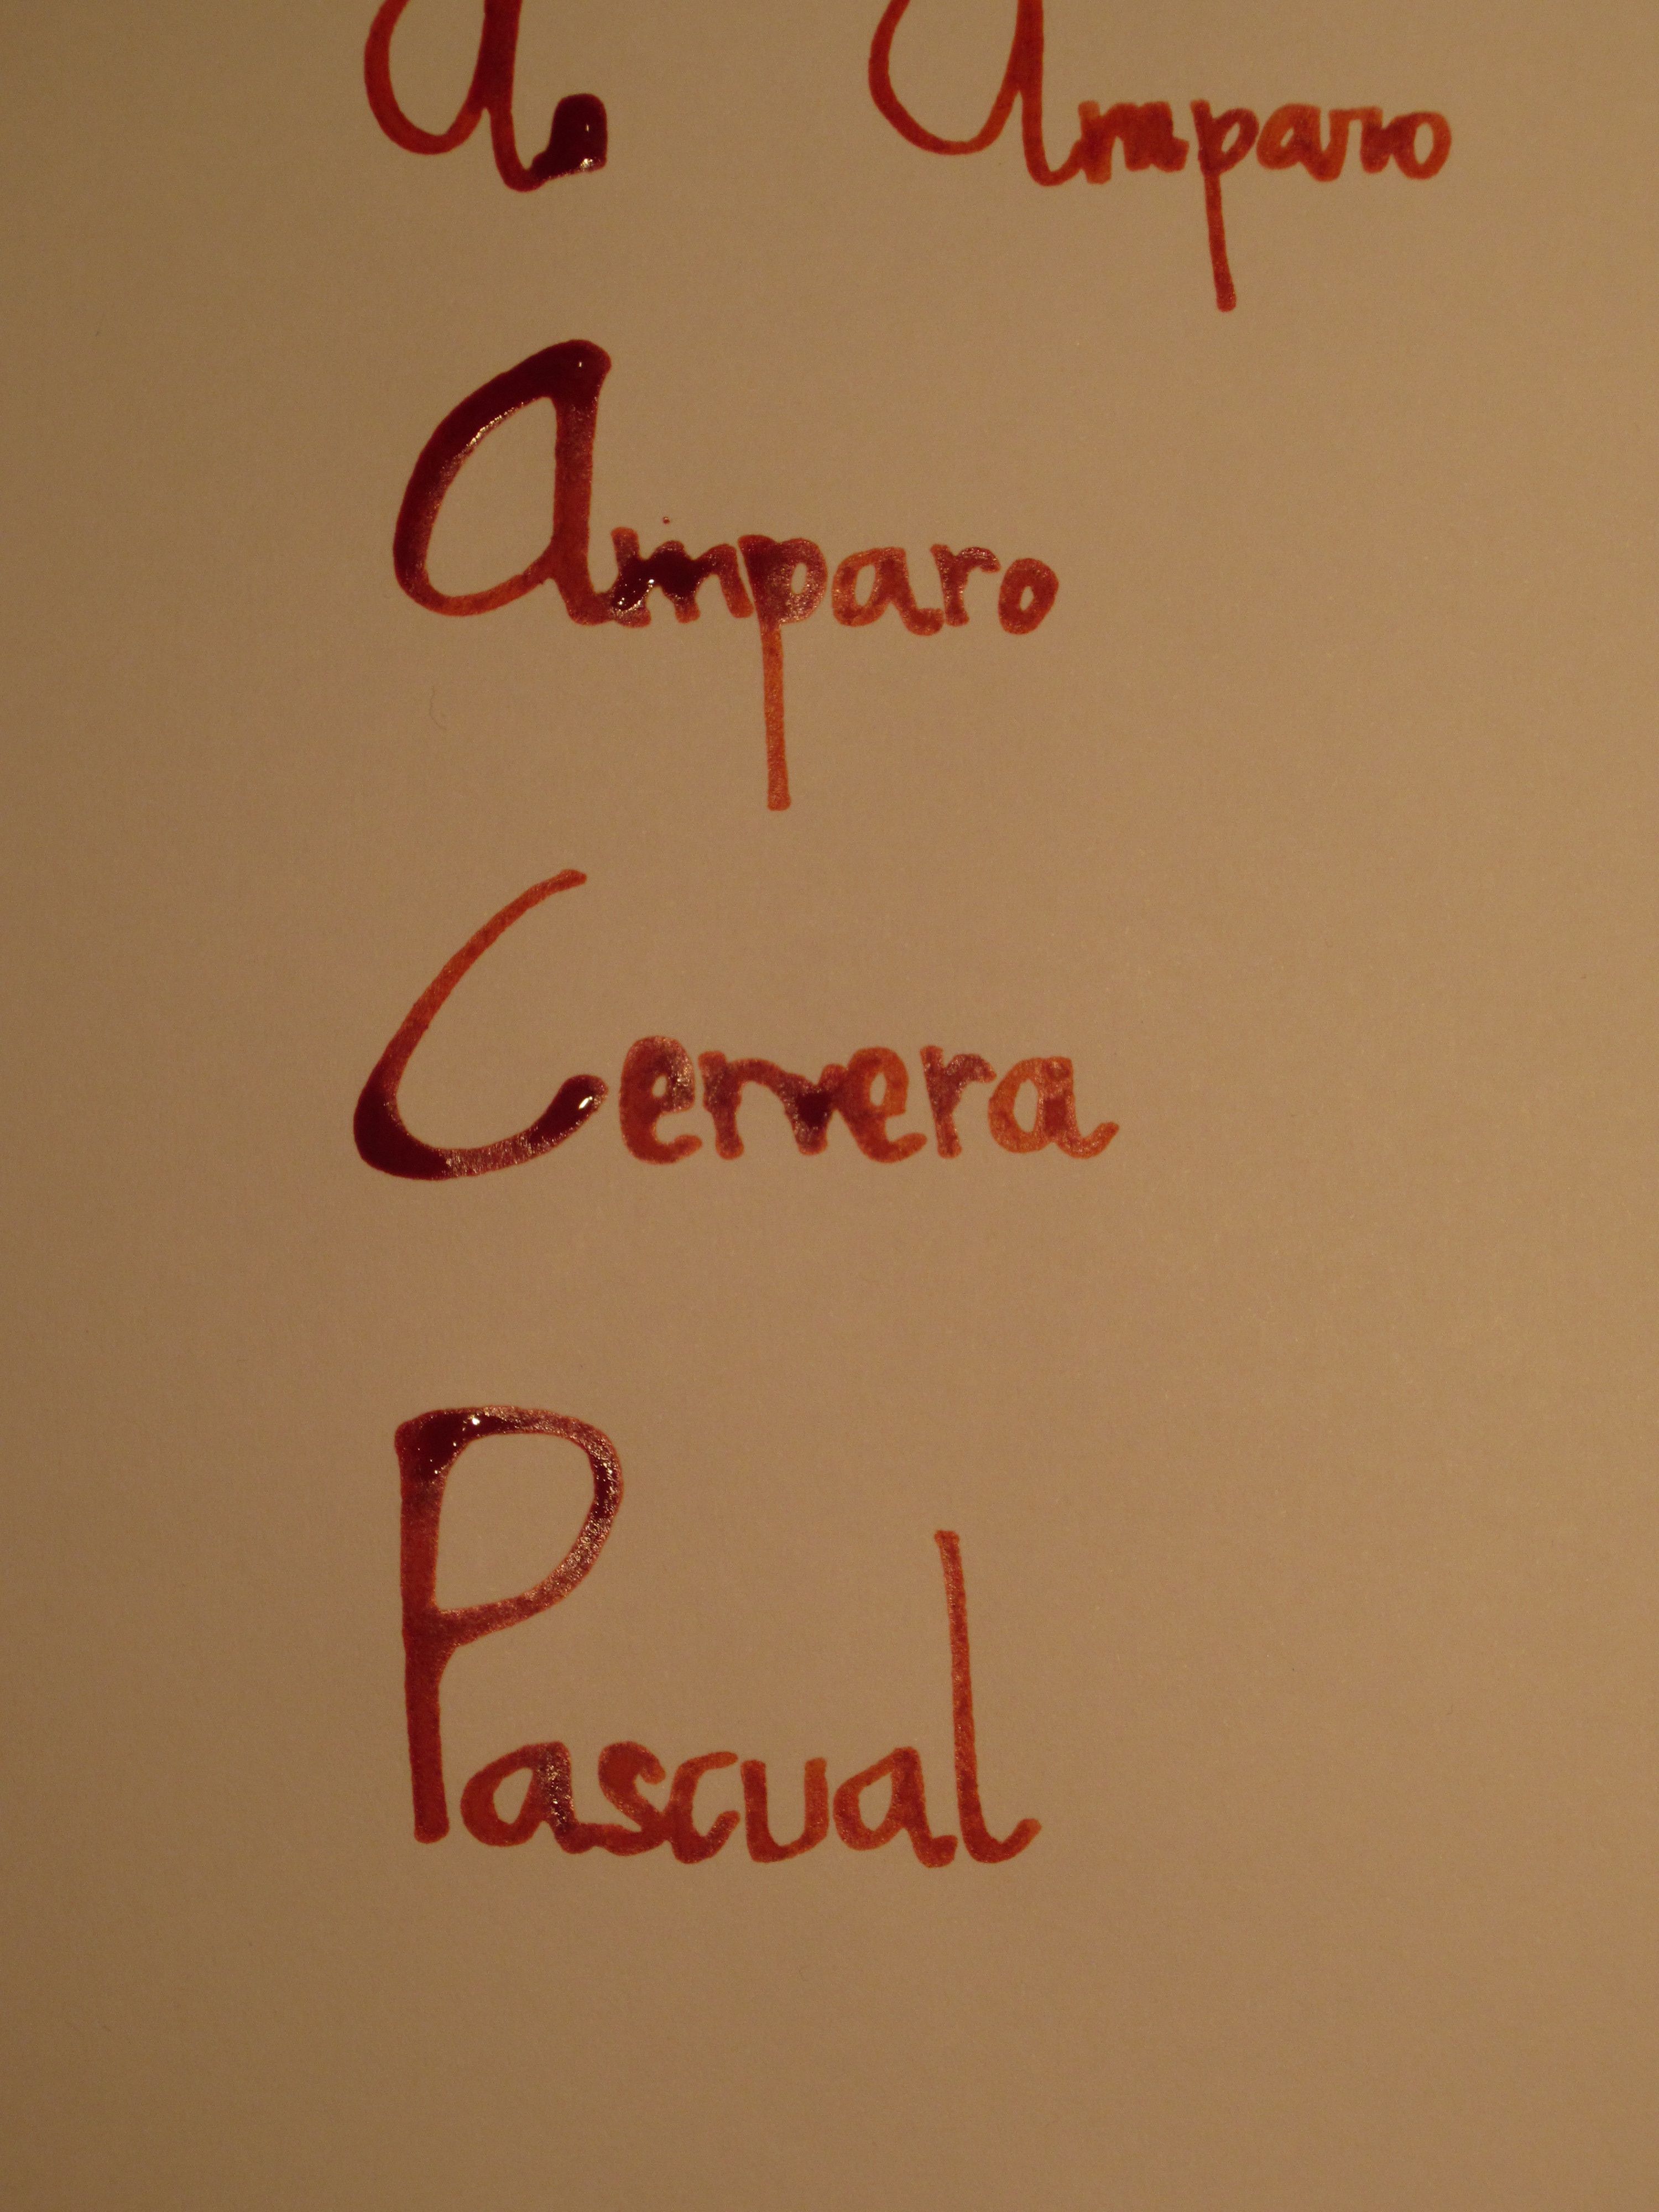 a. Amparo
Amparo
Cervera
Pascual